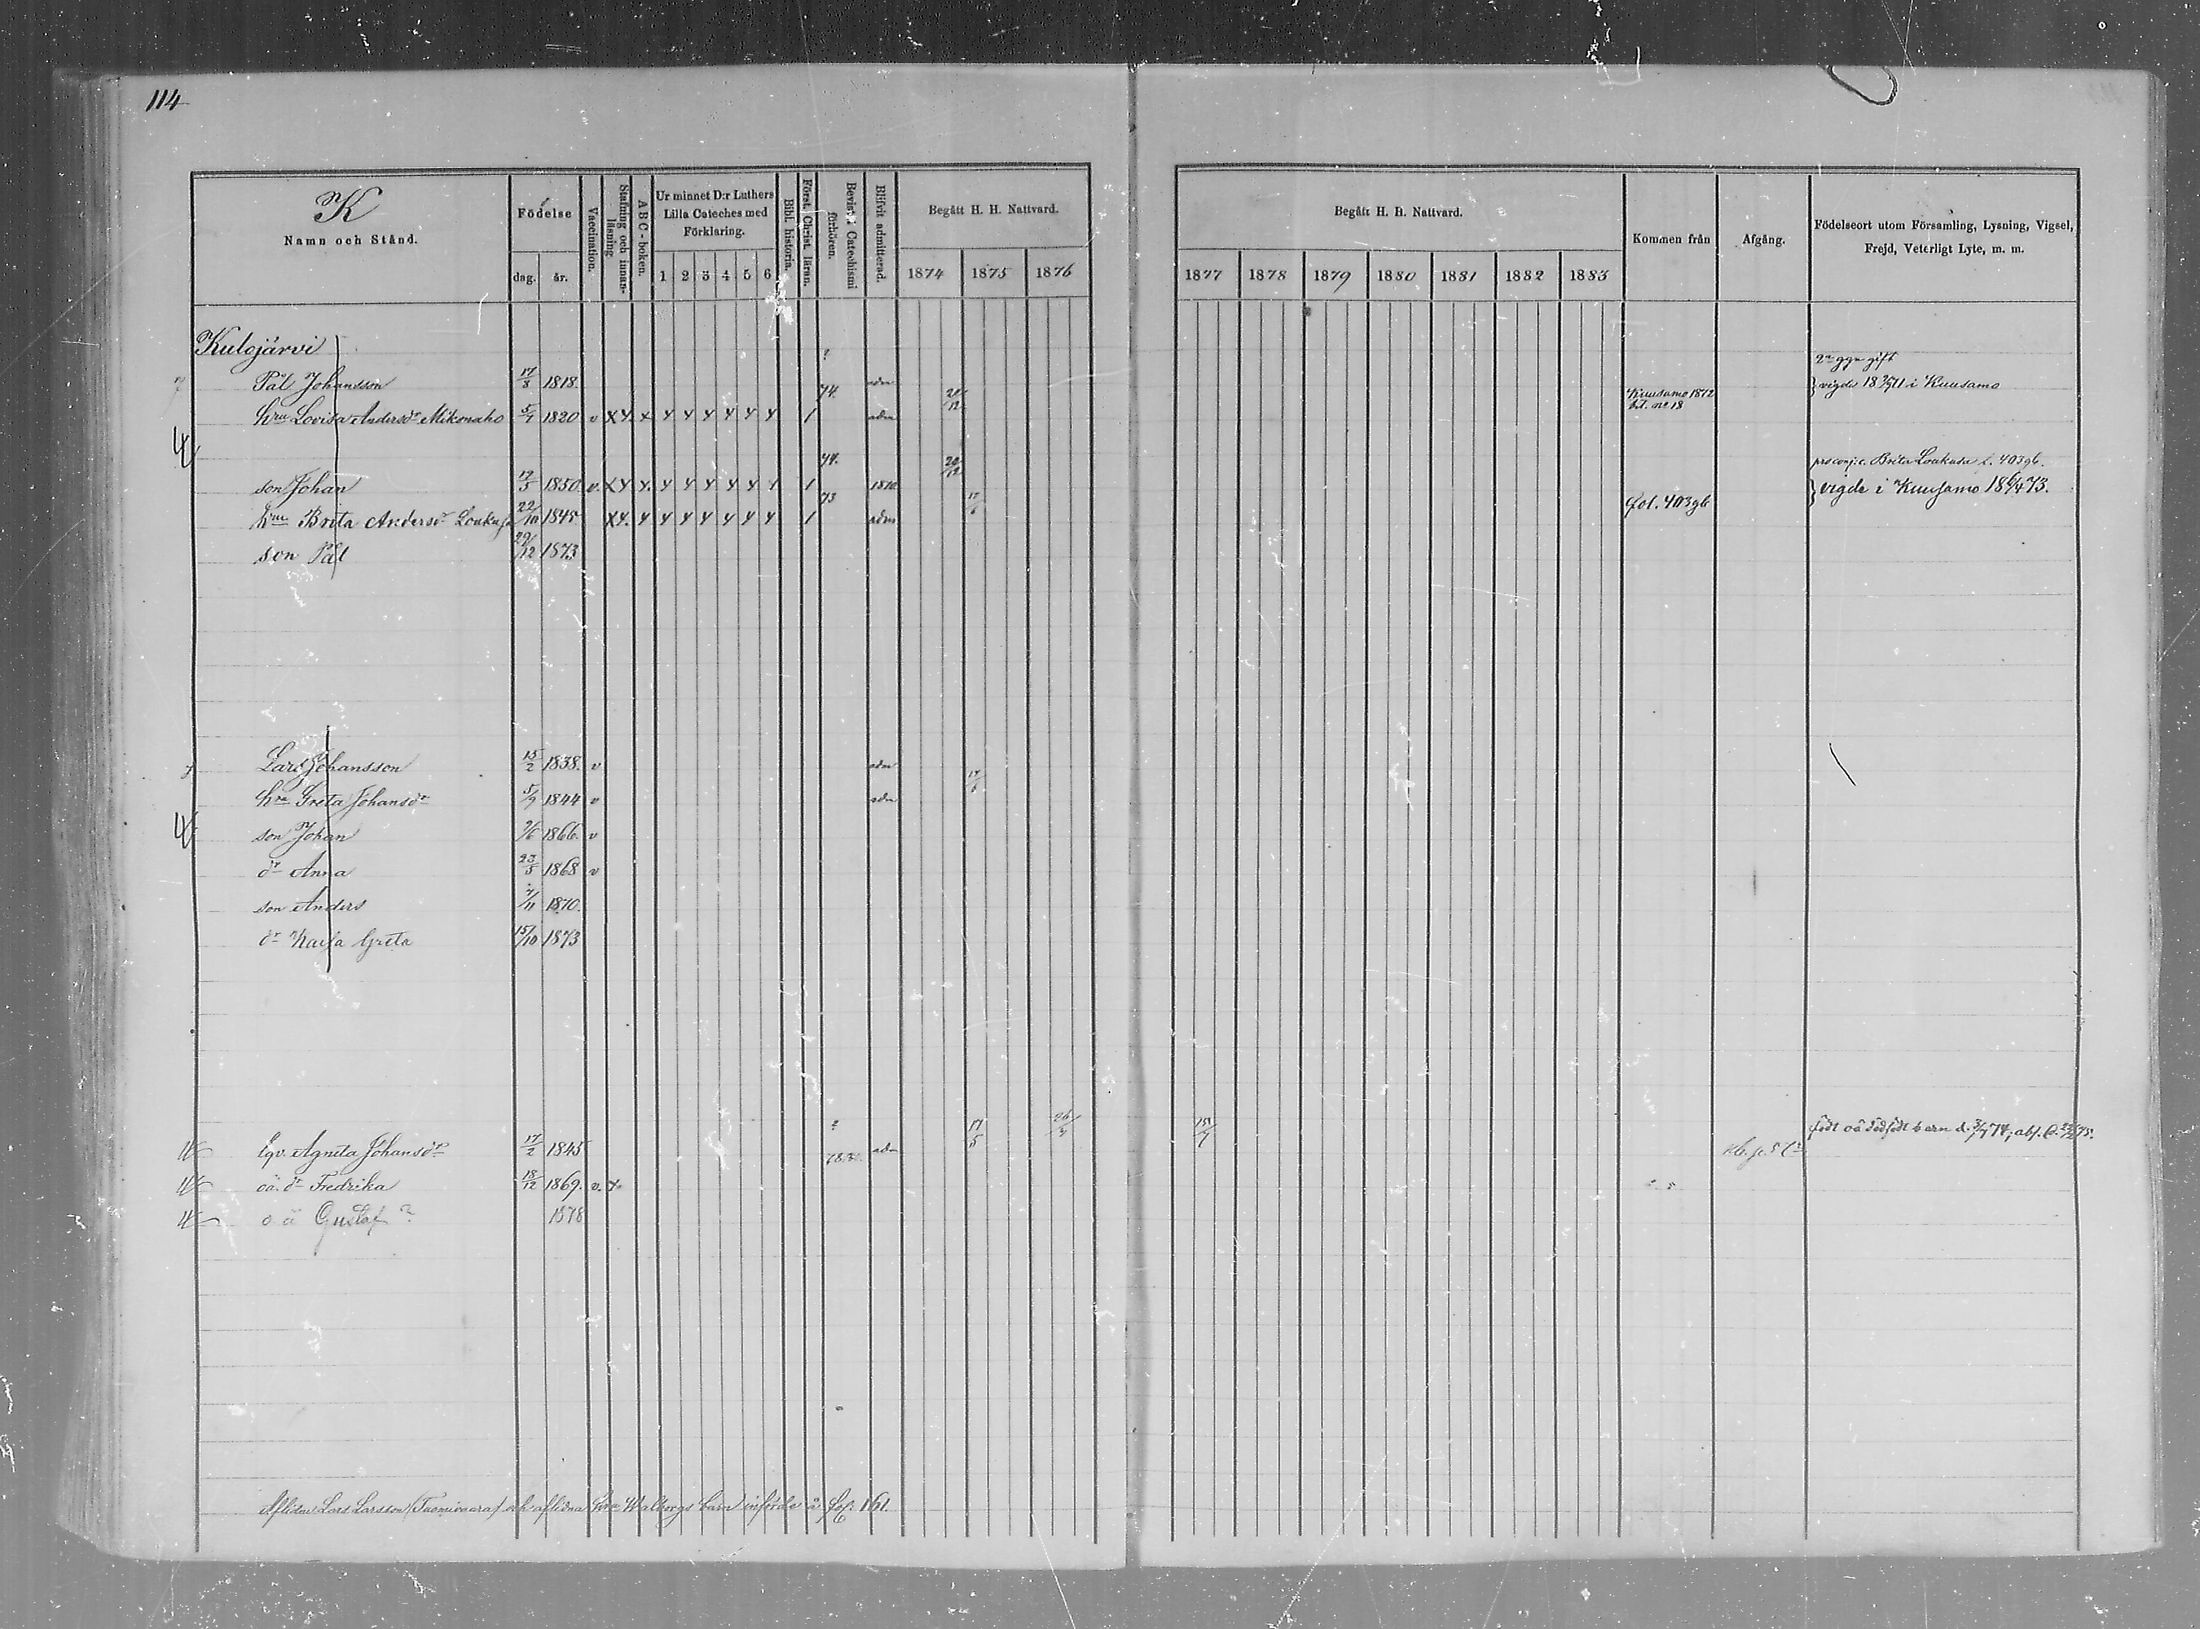 114
K
Namn och Stånd.
Födelse
dag.
år.
Vaccination.
Stafning och innanläsning
A B C - boken.
Ur minnet D:r Luthers Lilla Cateches med Förklaring.
1 2 3 4 5 6
Bibl. historia.
Först. Christ. läran.
Bevist. i Catechismi förhören.
Blifvit admitterad.
Begått H. H. Nattvard.
1874 1875 1876
Begått H. H. Nattvard.
1877 1878 1879 1880 1881 1882 1883
Kommen från
Afgång.
Födelseort utom Församling, Lysning, Vigsel, Frejd, Veterligt Lyte, m. m.
Kulojärvi
2 ggr gift
Pål Johansson 17/8 1818. 74. adm 20/12 Kuusamo 1872 vigde i Kuusamo
hru Lovisa Andersdr Mikonaho 5/7 1820 v X Y. x Y Y Y Y Y Y 1 adm bet. no. 18
74. 20/12 Brita Loukusa f. 403gb.
son Johan 12/3 1850. v. X Y Y. Y Y Y Y Y Y 1 1870 vigde i Kuusamo 18 6/4 73.
73 17/5 fol. 403gb
hru Brita Andersdr Loukusa 22/10 1845 X Y. Y Y Y Y Y Y Y 1 adm
son Pål 29/12 1873
Lars Johansson 15/2 1838. v adm
hru Greta Johansdr 5/9 1844 v adm
son Johan 9/6 1866. v
dr Anna 23/5 1868 v
son Anders 7/11 1870.
dr Kaisa Greta 15/10 1873
17/5 26/3 15/7
Lqv. Agneta Johansdr 17/2 1845 adm född oä dödfödt barn d. 3/7 74, abs.
oä. dr Fredrika 18/12 1869. v. x
o ä Gustaf ? 1878
Aflidne Lars Larsson (Tuomivaara) och aflidna hru Walborgs barn införde å fol. 161.